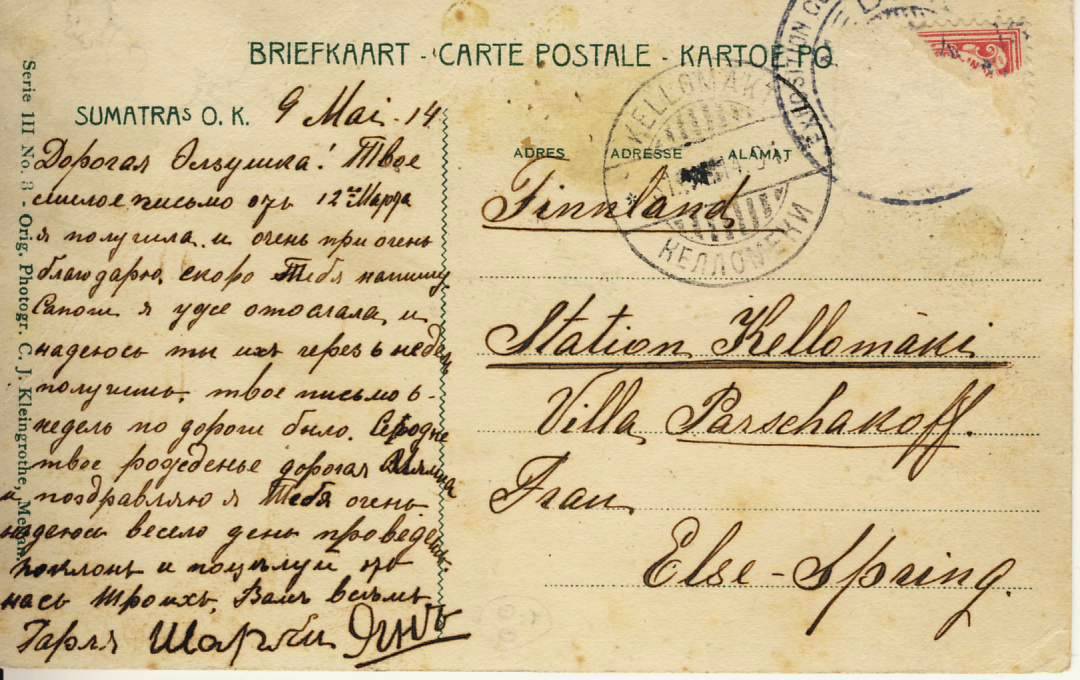 BRIEFKAART - CARTE POSTALE - KARTOE PO
SUMATRAS O. K. 9 Mai - 14
Дорогая Элзушка! Твое
милое письмо отъ 12го Марта
я получила и очень при очень
благодарю, скоро Тебя напишу.
Сапоги я уже отослала и
надеюсь ты ихъ через 6 недель
получишь, твое письмо 6-
недель по дороги было. Сегодня
твое рожденье дорогая
и поздравляю я Тебя очень
надеюсь весело день проведешь.
поклонъ и поцелуй отъ
насъ троихъ, Вамъ всемъ
ADRES ADRESSE ALAMAT
Finnland
Station Kellomäki
Villa Parschakoff.
Frau
Else-Spring.
KELLOMÄKI
КЕЛЛОМЕКИ
Serie III No. 3 - Orig. Photogr. C. J. Kleingrothe, Medan